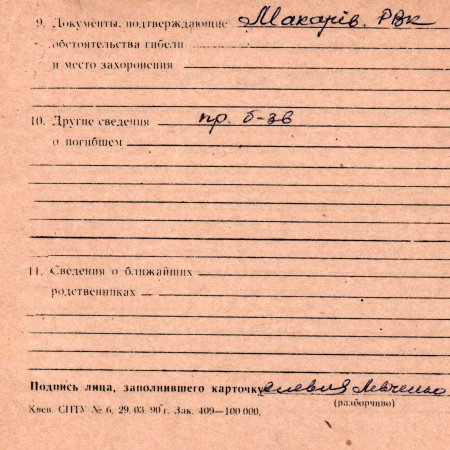 9. Документы, подтверждающие Макарів. РВК
обстоятельства гибели
и место захоронения
10. Другие сведения пр. б-зв
о погибшем
11. Сведения о ближайших
родственниках
Подпись лица, заполнившего карточку Левченко
(разборчиво)
Киев. СПТУ № 6, 29. 03. 90 г. Зак. 409—100 000.